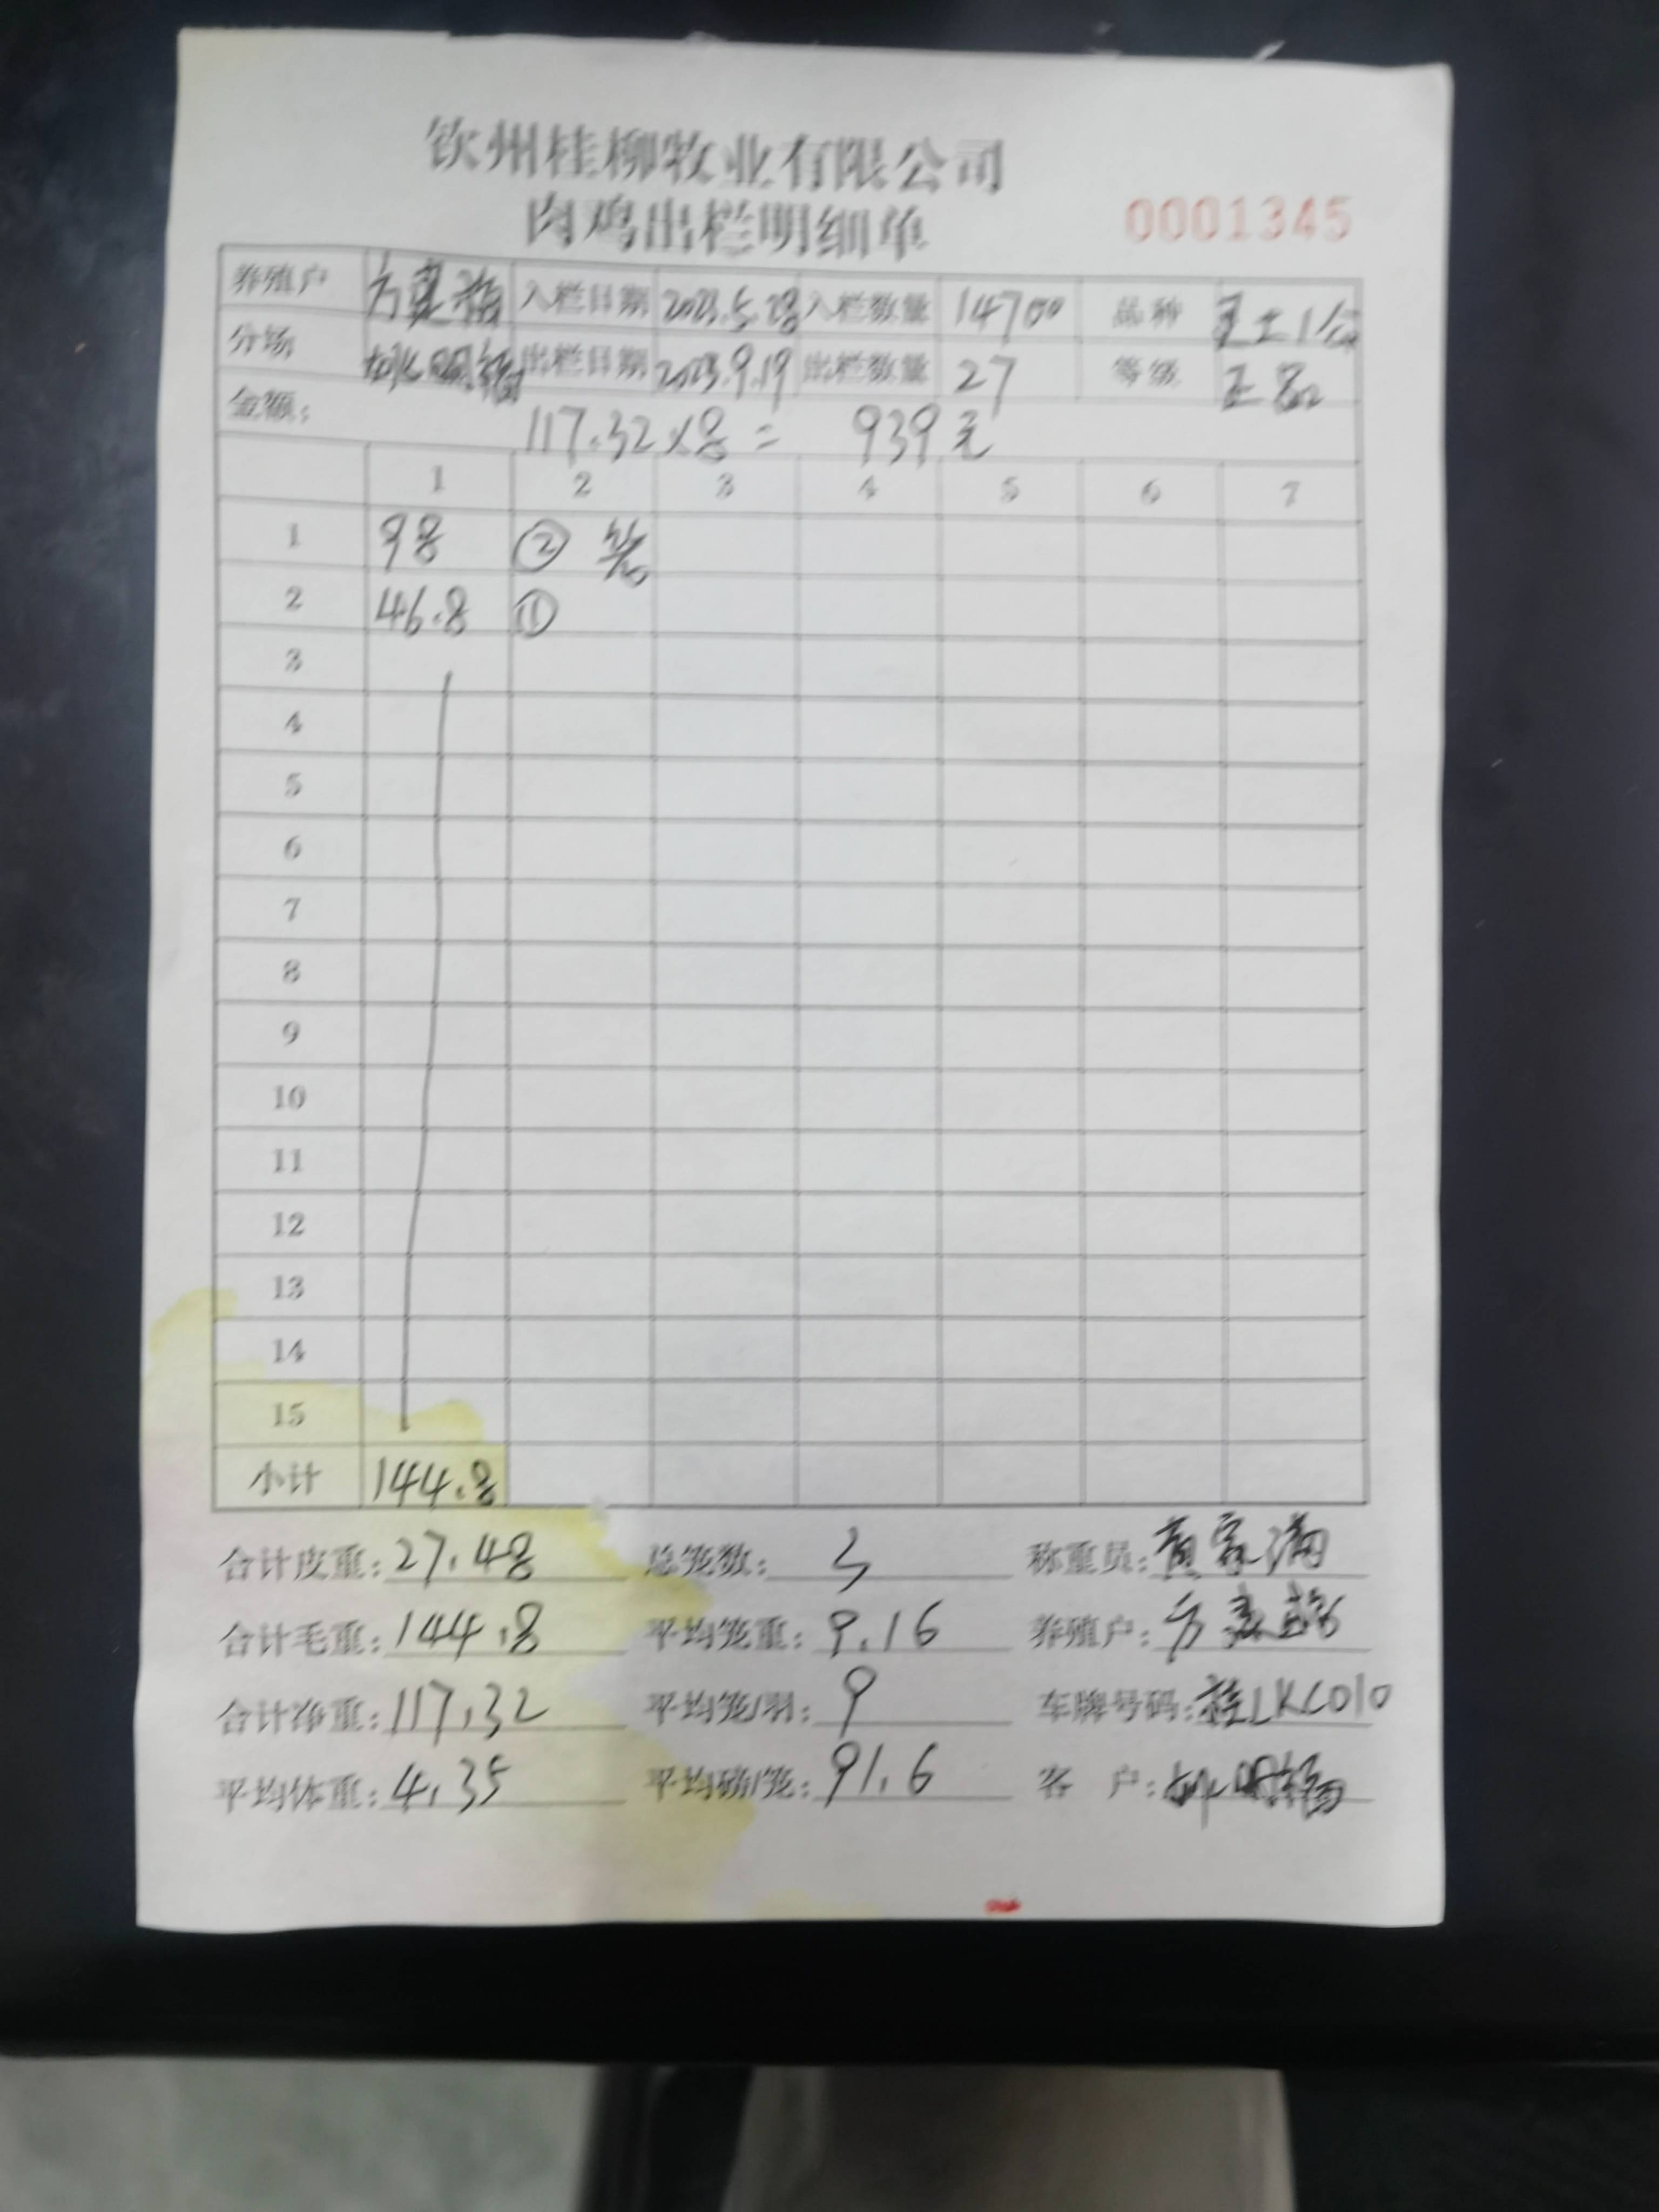 钦州桂柳牧业有限公司
肉鸡出栏明细单 0001345
养殖户 入栏日期 2023.5.28 入栏数量 14700 品种 土1公
分场 出栏日期 2023.9.19 出栏数量 27 等级 正品
金额: 117.32×8= 939元
1 2 3 4 5 6 7
1 98 ②
2 46.8 ①
3
4
5
6
7
8
9
10
11
12
13
14
15
小计 144.8
合计皮重: 27.48 总笼数: 3 称重员: 黄家满
合计毛重: 144.8 平均笼重: 9.16 养殖户: 方
合计净重: 117.32 平均笼/羽: 9 车牌号码: 桂LKC010
平均体重: 4.35 平均磅/笼: 91.6 客 户: